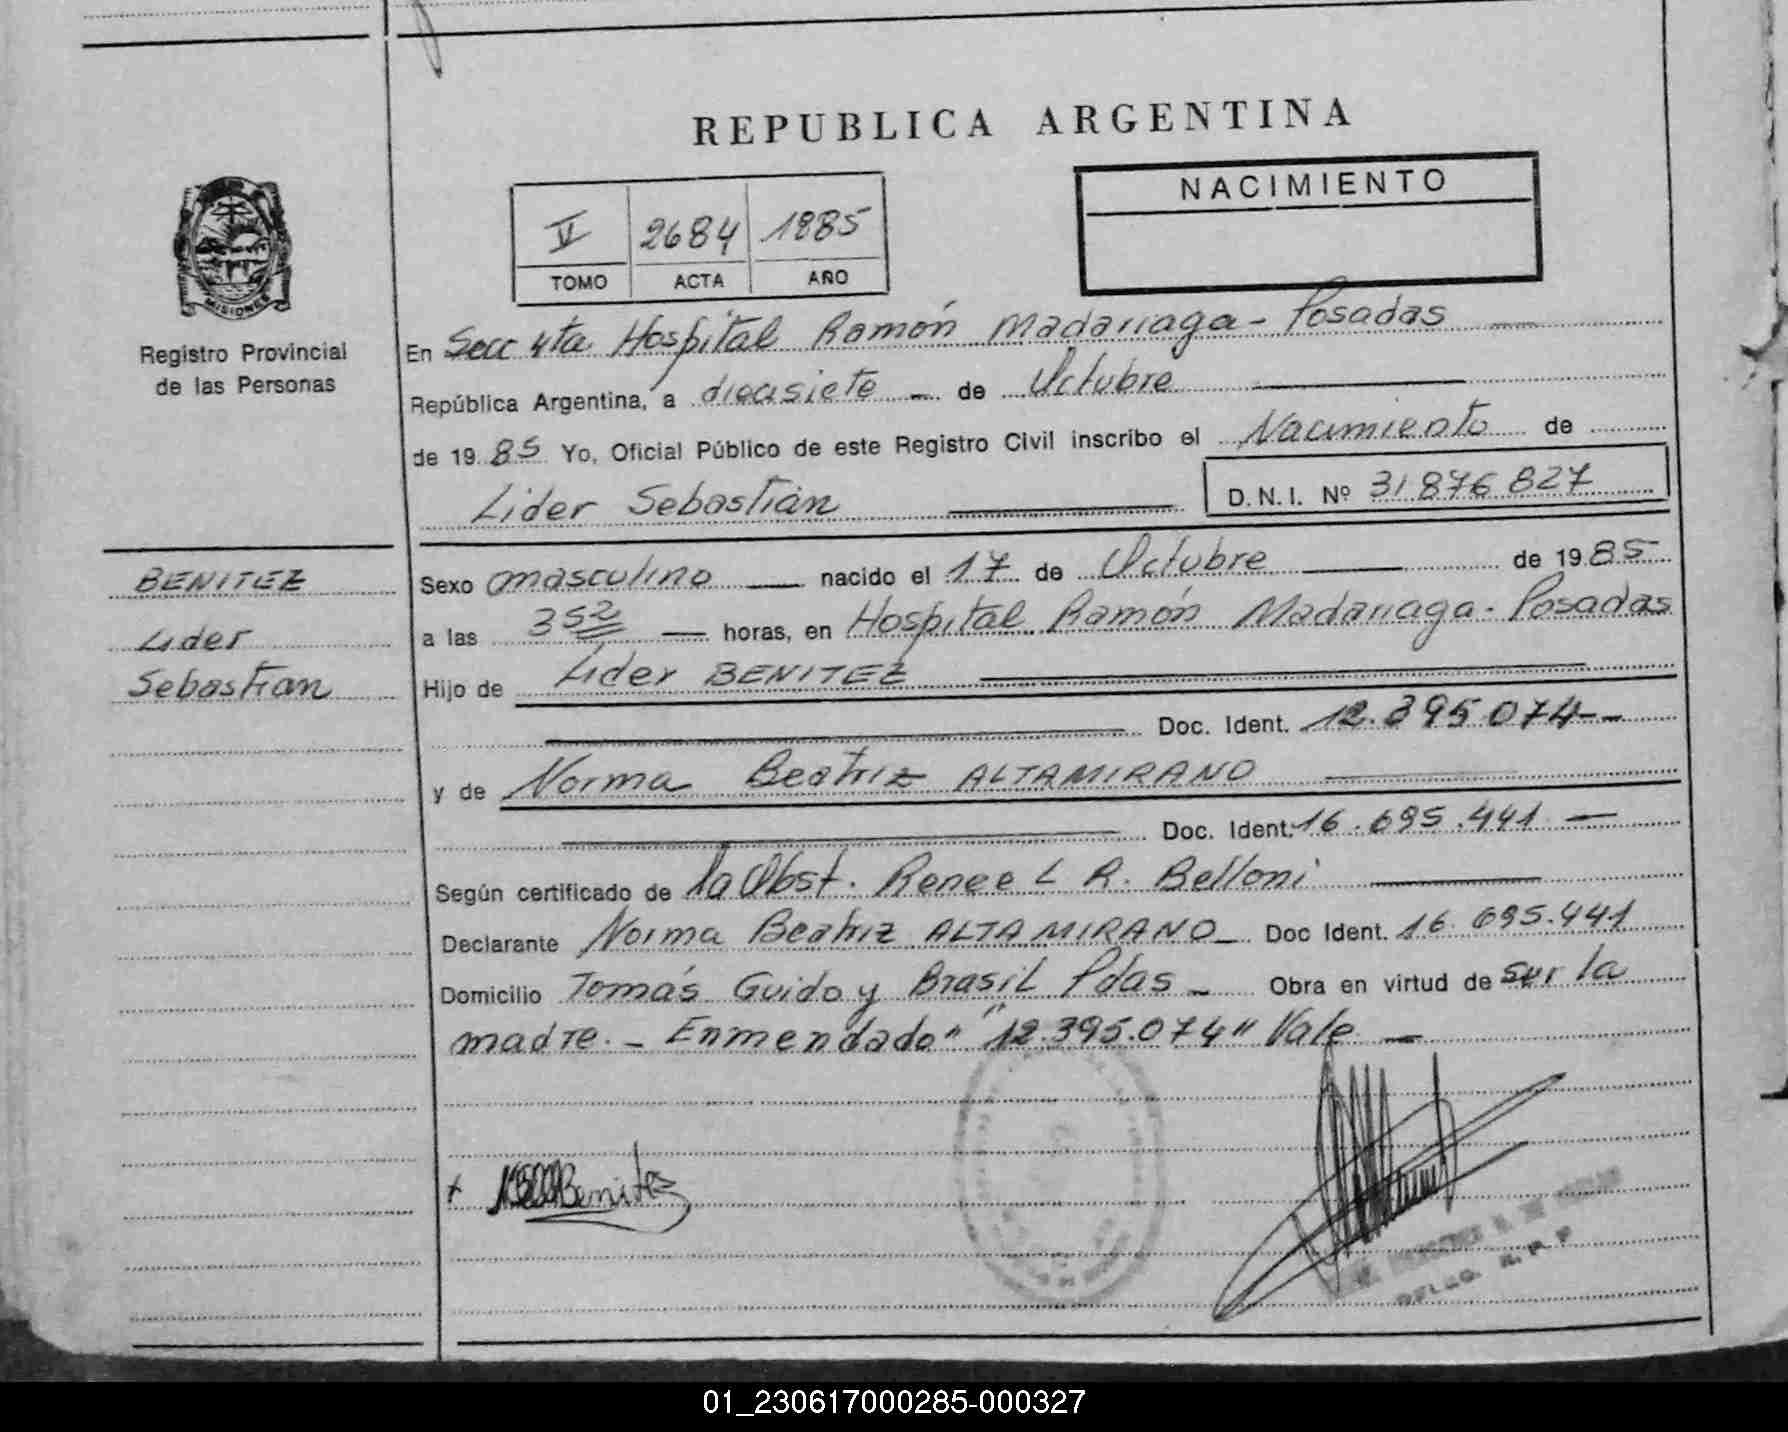 REPUBLICA ARGENTINA
NACIMIENTO
V 2684 1985
TOMO ACTA AÑO
MISIONES
Registro Provincial
de las Personas
En Secc 4ta Hospital Ramón Madariaga - Posadas —
República Argentina, a diecisiete - de Octubre —
de 1985 Yo, Oficial Público de este Registro Civil inscribo el Nacimiento de
Lider Sebastián — D.N.I. Nº 31 876 827
BENITEZ
Lider
Sebastian
Sexo masculino — nacido el 17 de Octubre — de 1985
a las 3 52 — horas, en Hospital Ramón Madariaga - Posadas
Hijo de Lider BENITEZ —
— Doc. Ident. 12.395.074--
y de Norma Beatriz ALTAMIRANO —
— Doc. Ident. 16.695.441 —
Según certificado de la Obst. Renee L R. Belloni —
Declarante Norma Beatriz ALTAMIRANO - Doc Ident. 16.695.441
Domicilio Tomás Guido y Brasil Pdas - Obra en virtud de ser la
madre. - Enmendado " "12.395.074" Vale —
x Benitez
R. P. P.
01_230617000285-000327